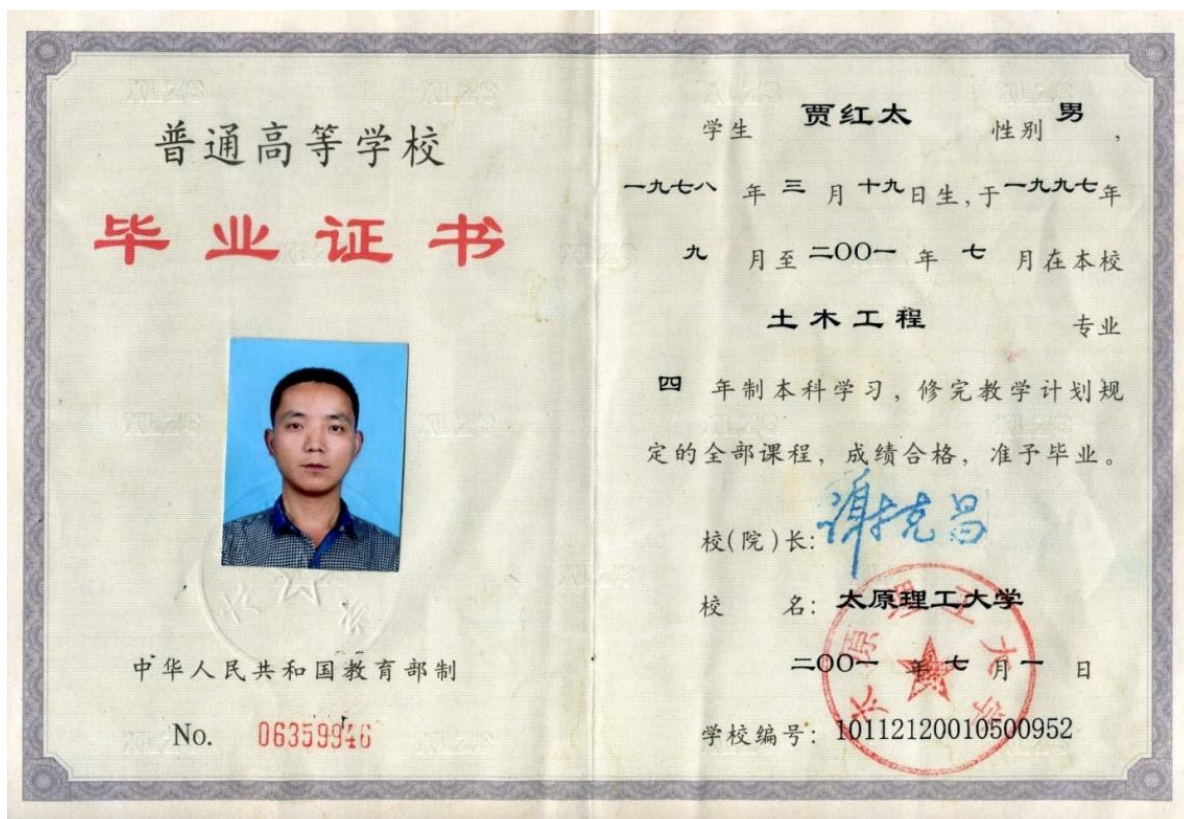 普通高等学校
毕业证书
中华人民共和国教育部制
No. 06359946
学生 贾红太 性别 男,
一九七八 年 三 月 十九日生,于一九九七年
九 月至 二〇〇一 年 七 月在本校
土木工程 专业
四 年制本科学习,修完教学计划规
定的全部课程,成绩合格,准予毕业。
校(院)长:谢克昌
校 名:太原理工大学
二〇〇一 年 七 月 一 日
学校编号:10112120010500952
太原理工大学